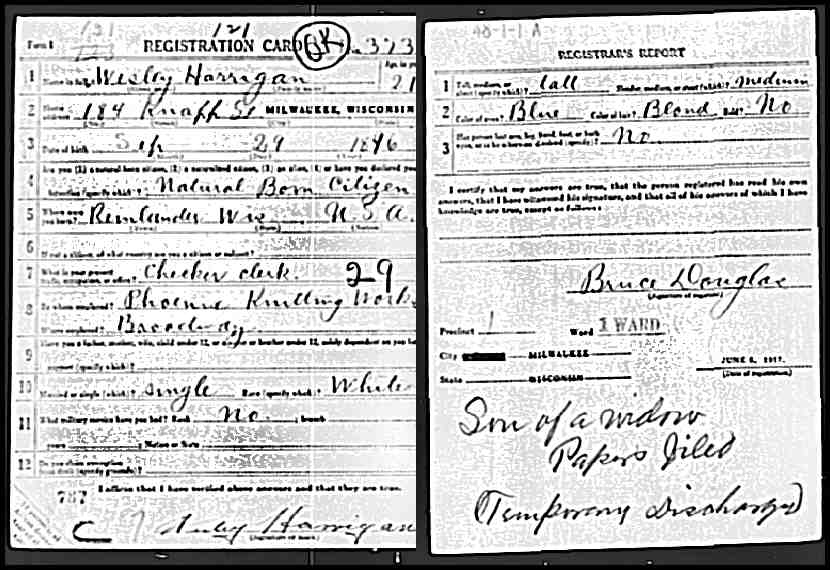 121
123 121
Form 1 REGISTRATION CARD No. 373
OK
1 Name in full Wesley Harrigan Age, in yrs 21
2 Home address 184 Knapp St MILWAUKEE, WISCONSIN
3 Date of birth Sep 29 1896
4 Are you (1) a natural born citizen, (2) a naturalized citizen, (3) an alien, (4) or have you declared your
intention (specify which)? Natural Born Citizen
5 Where were you born? Reinlander Wis U.S.A.
6 If not a citizen, of what country are you a citizen or subject?
7 What is your present trade, occupation, or office? Checker clerk. 29
8 By whom employed? Phoenix Knitting Works
Where employed? Broadway
9 Have you a father, mother, wife, child under 12, or a sister or brother under 12, solely dependent on you for
support (specify which)?
10 Married or single (which)? single Race (specify which)? White
11 What military service have you had? Rank No ; branch
years ; Nation or State
12 Do you claim exemption from draft (specify grounds)?
I affirm that I have verified above answers and that they are true.
787
Harrigan
(Signature or mark)
48-1-1 A
REGISTRAR'S REPORT
1 Tall, medium, or short (specify which)? tall Slender, medium, or stout (which)? medium
2 Color of eyes? Blue Color of hair? Blond Bald? No
3 Has person lost arm, leg, hand, foot, or both eyes, or is he otherwise disabled (specify)? No
I certify that my answers are true, that the person registered has read his own
answers, that I have witnessed his signature, and that all of his answers of which I have
knowledge are true, except as follows:
Bruce Douglas
(Signature of registrar)
Precinct 1 Ward 1 WARD
City MILWAUKEE
State WISCONSIN
JUNE 5, 1917.
(Date of registration)
Son of a widow
Papers filed
(Temporary Discharged)